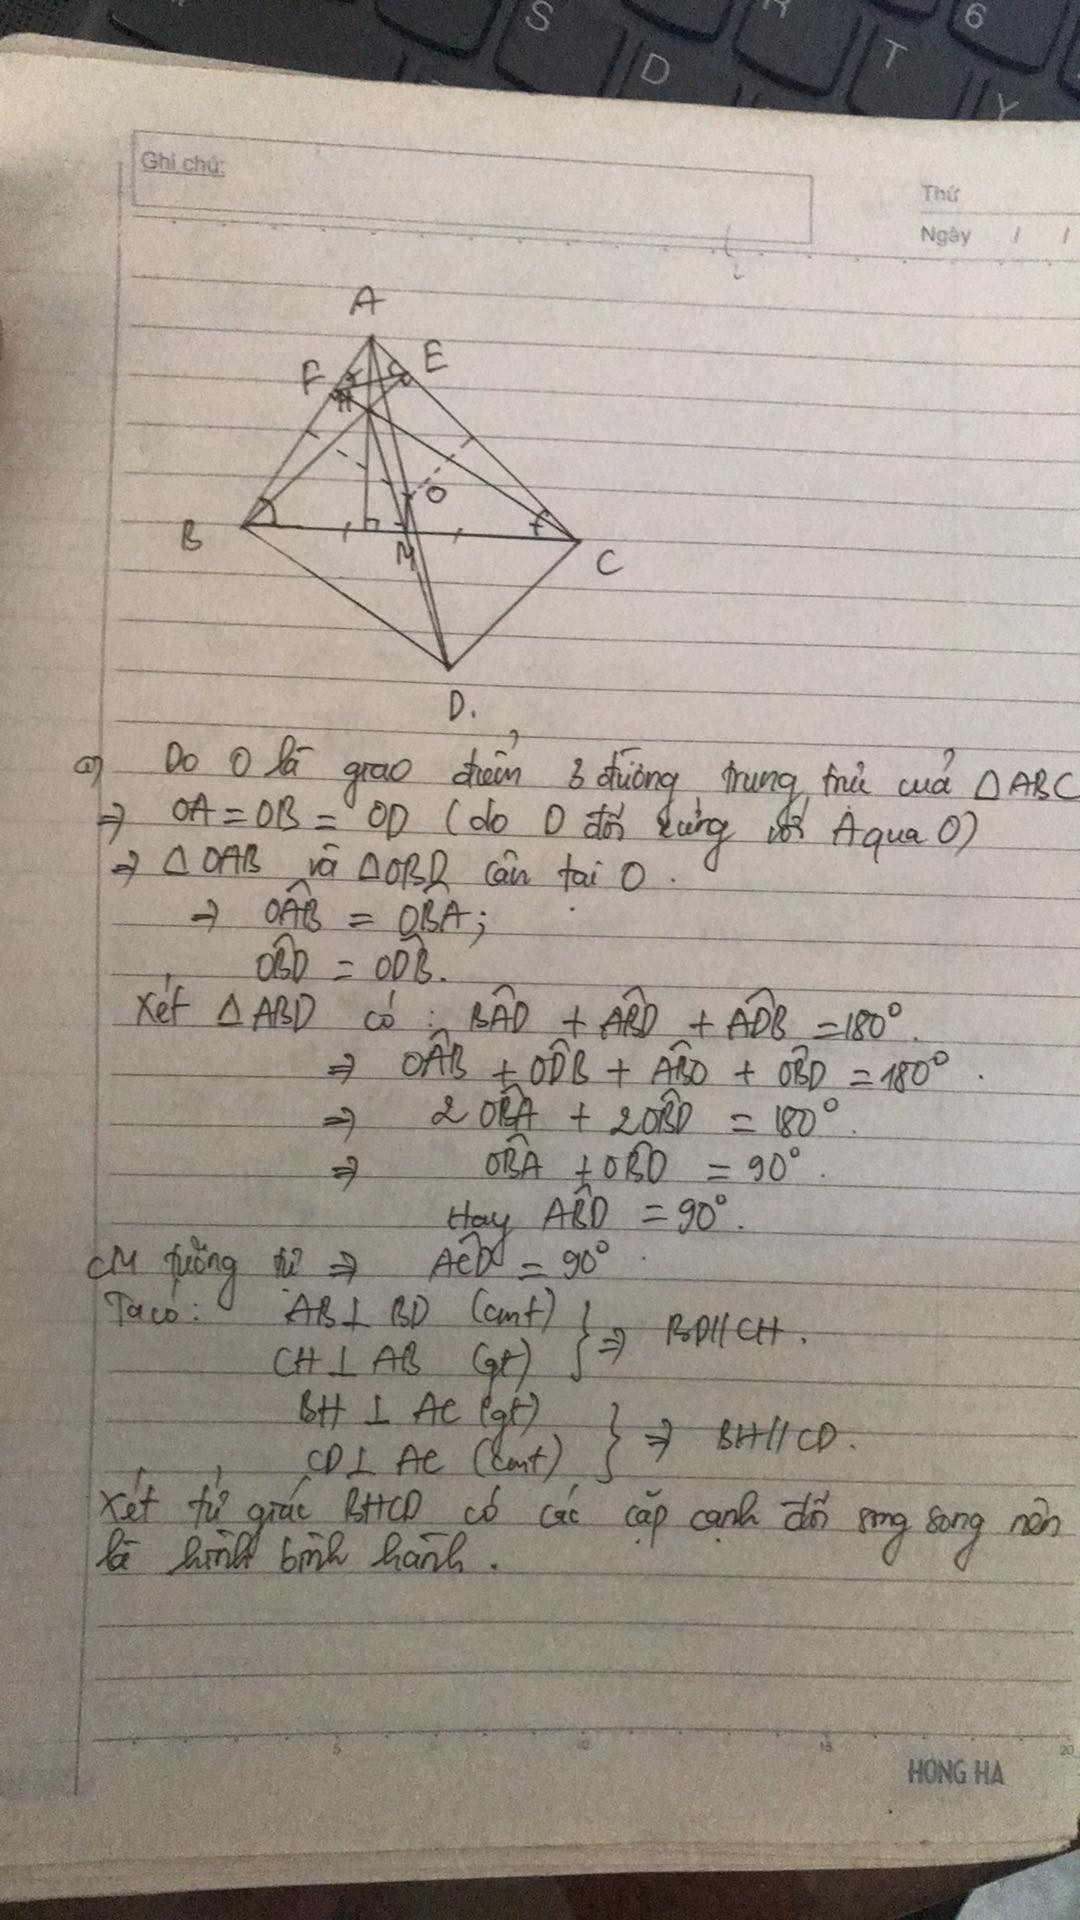 S
D
R
T
6
Y
Ghi chú:
Thứ
Ngày / /
A
F
E
H
O
B
M
C
D.
a) Do O là giao điểm 3 đường trung trực của △ABC
⇒ OA = OB = OD (do D đối xứng với A qua O)
⇒ △OAB và △OBD cân tại O.
⇒ OÂB = OB̂A;
OB̂D = OD̂B.
Xét △ABD có: BÂD + AB̂D + AD̂B = 180°.
⇒ OÂB + OD̂B + AB̂O + OB̂D = 180°.
⇒ 2OB̂A + 2OB̂D = 180°.
⇒ OB̂A + OB̂D = 90°.
Hay AB̂D = 90°.
CM tương tự ⇒ AĈD = 90°.
Ta có: AB ⊥ BD (cmt)
CH ⊥ AB (gt) } ⇒ BD // CH.
BH ⊥ AC (gt)
CD ⊥ AC (cmt) } ⇒ BH // CD.
Xét tứ giác BHCD có các cặp cạnh đối song song nên
là hình bình hành.
5 10 15 20
HONG HA